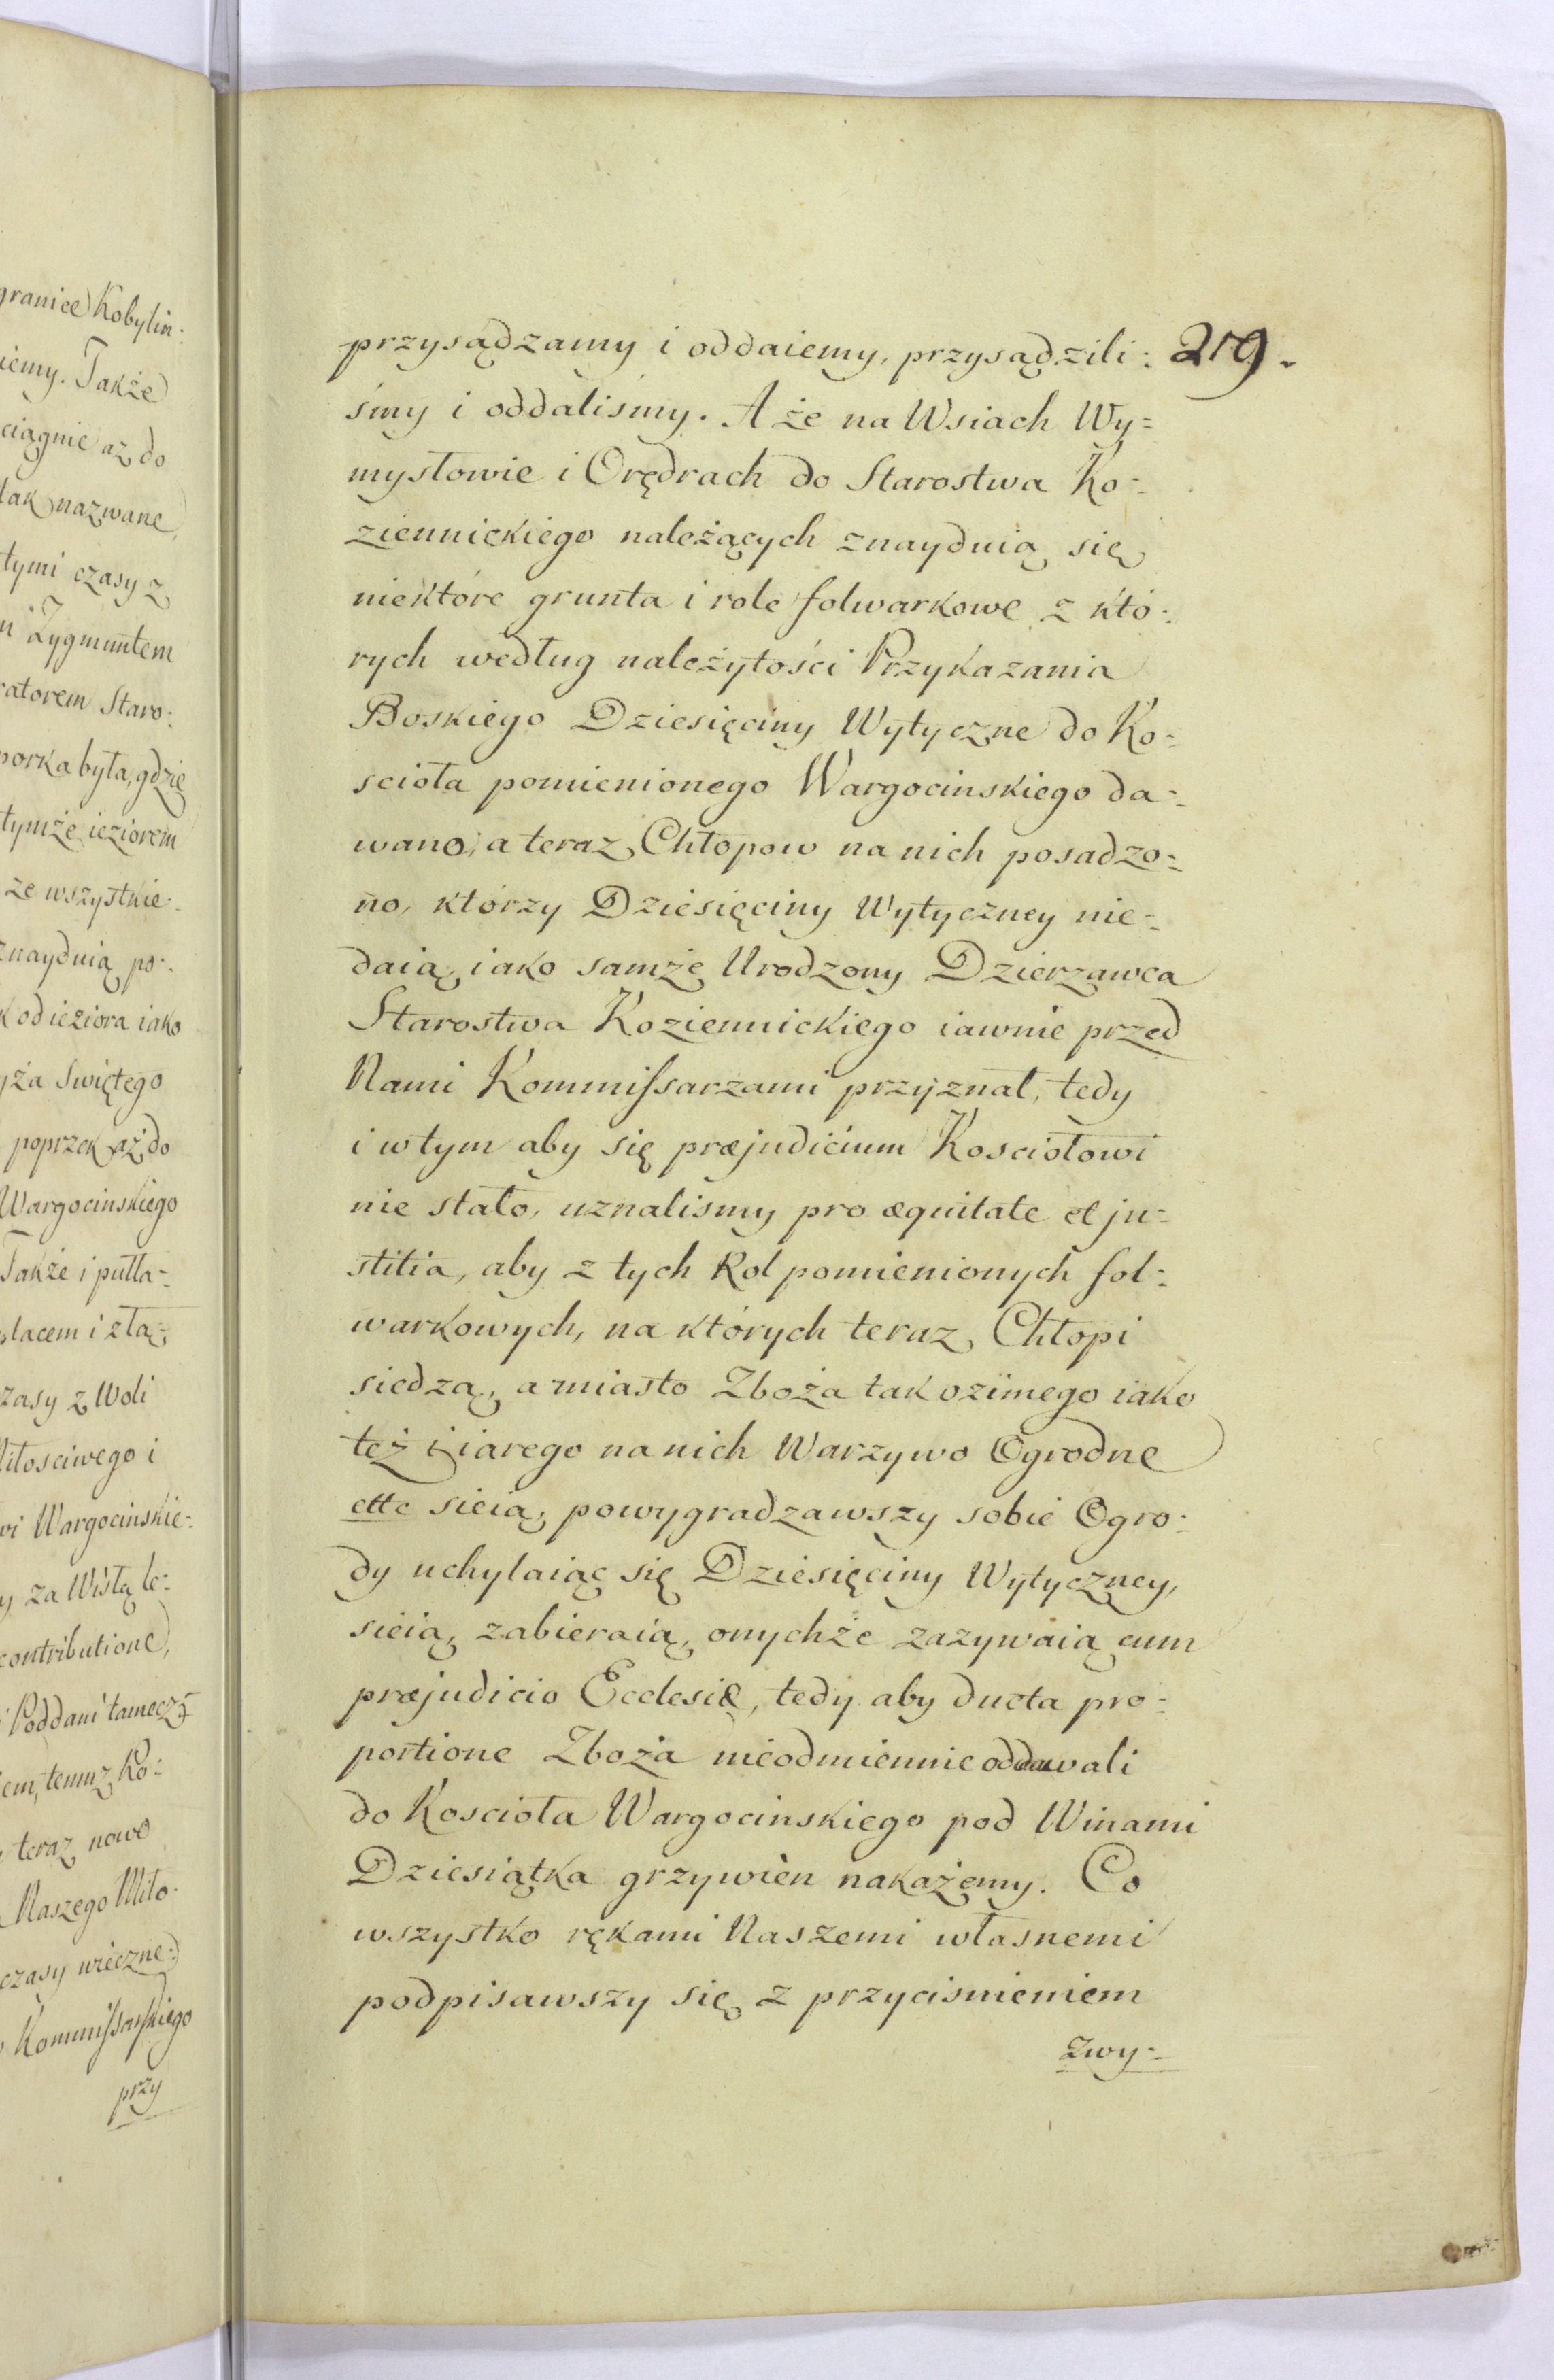 granice Kobylin:
iemy. Także
ciągnie aż do
tak nazwane
tymi czasy z
Zygmuntem
ratorem Staro:
porka była, gdzie
tymże ieziorem
ze wszystkie:
znayduią po:
od ieziora iako
yża Swiętego
poprzek aż do
Wargocinskiego
Także i putta:
placem i złą:
zasy z Woli
iłosciwego i
wi Wargocinskie:
y za Wisłą le:
contributione,
Poddani tamecz
em, temuz Ko:
teraz nowo
Naszego Miło:
czasy wieczne:
Kommissarskiego
przy
219.
przysądzamy i oddaiemy, przysądzili:
śmy i oddaliśmy. A że na Wsiach Wy=
mysłowie i Orędrach do Starostwa Ko=
ziennickiego należących znayduią się
niektóre grunta i role folwarkowe z któ:
rych według należytości Przykazania
Boskiego Dziesięciny Wytyczne do Ko=
scioła pomienionego Wargocinskiego da=
wano, a teraz Chłopow na nich posadzo=
no, którzy Dziesięciny Wytyczney nie=
daią, iako samże Urodzony Dzierzawca
Starostwa Koziennickiego iawnie przed
Nami Kommissarzami przyznał, tedy
i w tym aby się præjudicium Kosciołowi
nie stało, uznalismy pro æquitate et ju=
stitia, aby z tych Rol pomienionych fol=
warkowych, na których teraz Chłopi
siedzą, a miasto Zboża tak ozimego iako
też i iarego na nich Warzywo Ogrodne
ette sieią, powygradzawszy sobie Ogro=
dy uchylaiąc się Dziesięciny Wytyczney,
sieią, zabieraią, onychże zazywaią cum
præjudicio Ecclesiæ, tedy aby ducta pro=
portione Zboża nieodmiennie oddawali
do Koscioła Wargocinskiego pod Winami
Dziesiątka grzywien nakażemy. Co
wszystko rękami Naszemi własnemi
podpisawszy się z przycisnieniem
zwy=